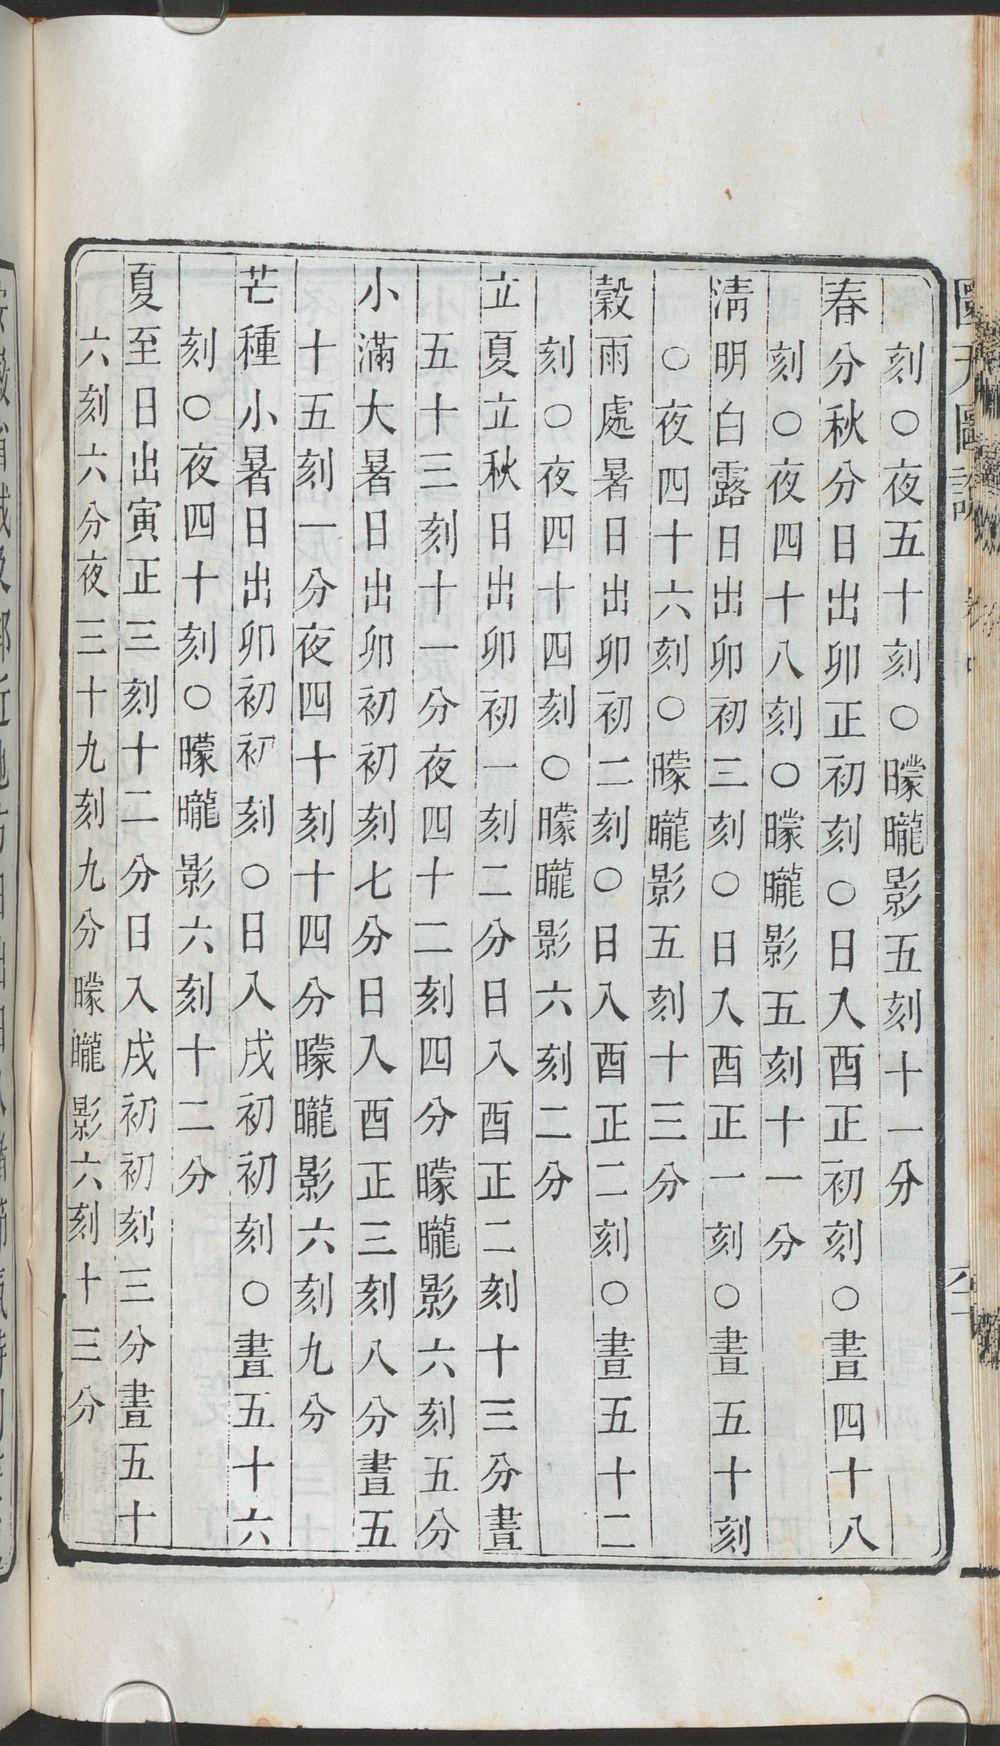 刻○夜五十刻○曚曨影五刻十一分
春分秋分日出卯正初刻○日入酉正初刻○晝四十八
刻○夜四十八刻○曚曨影五刻十一分
淸明白露日出卯初三刻○日入酉正一刻○晝五十刻
○夜四十六刻○曚曨影五刻十三分
穀雨處暑日出卯初二刻○日入酉正二刻○晝五十二
刻○夜四十四刻○曚曨影六刻二分
立夏立秋日出卯初一刻二分日入酉正二刻十三分晝
五十三刻十一分夜四十二刻四分曚曨影六刻五分
小滿大暑日出卯初初刻七分日入酉正三刻八分晝五
十五刻一分夜四十刻十四分曚曨影六刻九分
芒種小暑日出卯初初刻○日入戌初初刻○晝五十六
刻○夜四十刻○曚曨影六刻十二分
夏至日出寅正三刻十二分日入戌初初刻三分晝五十
六刻六分夜三十九刻九分曚曨影六刻十三分